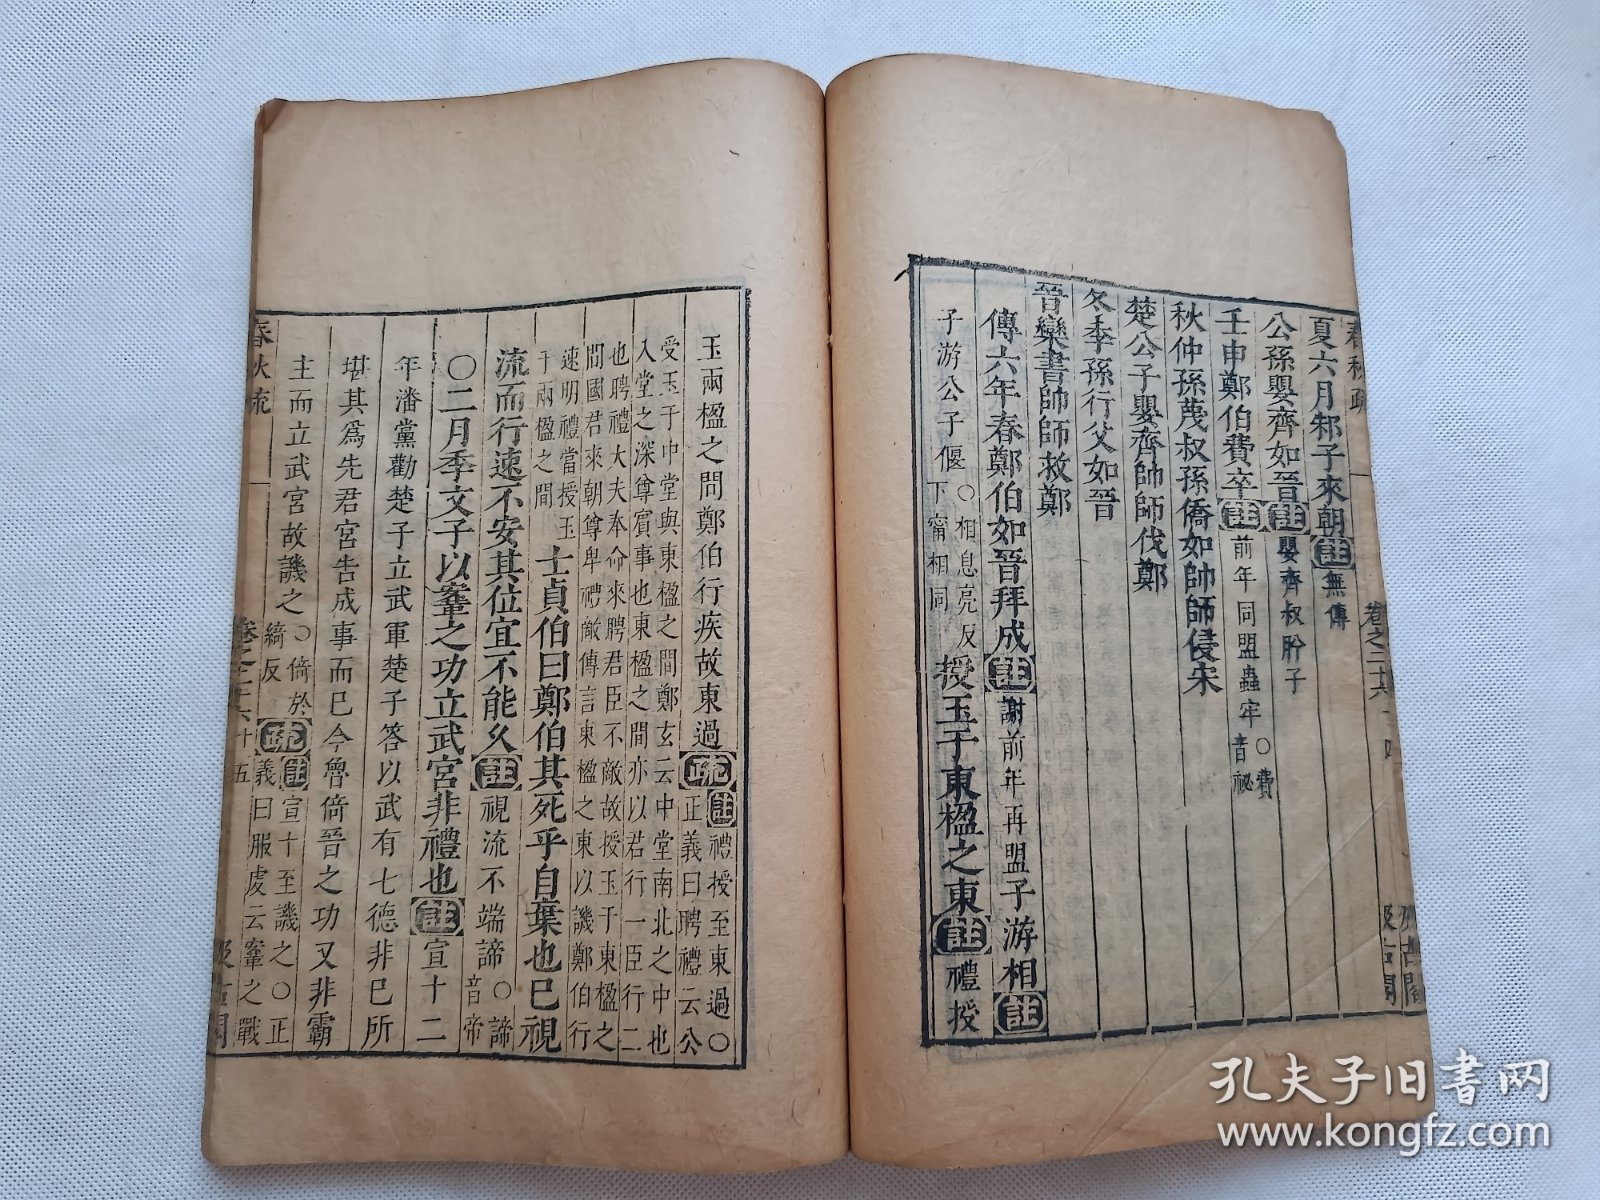 春秋疏
卷之二十六
十四
汲古閣
夏六月邾子來朝註無傳
公孫嬰齊如晉註嬰齊叔肸子
壬申鄭伯費卒註前年同盟蟲牢○費音祕
秋仲孫蔑叔孫僑如帥師侵宋
楚公子嬰齊帥師伐鄭
冬季孫行父如晉
晉欒書帥師救鄭
傳六年春鄭伯如晉拜成註謝前年再盟子游相註
子游公子偃○相息亮反下甯相同授玉于東楹之東註禮授
玉兩楹之間鄭伯行疾故東過疏註禮授至東過○正義曰聘禮云公
受玉于中堂與東楹之間鄭玄云中堂南北之中也
入堂之深尊賓事也東楹之間亦以君行一臣行二
也聘禮大夫奉命來聘君臣不敵故授玉于東楹之
間國君來朝尊卑禮敵傳言東楹之東以譏鄭伯行
速明禮當授玉于兩楹之間士貞伯曰鄭伯其死乎自棄也已視
流而行速不安其位宜不能久註視流不端諦○諦音帝
○二月季文子以鞌之功立武宮非禮也註宣十二
年潘黨勸楚子立武軍楚子答以武有七德非己所
堪其爲先君宮告成事而已今魯倚晉之功又非霸
主而立武宮故譏之○倚於綺反疏註宣十至譏之○正義曰服虔云鞌之戰
春秋疏
卷之二十六
十五
汲古閣
孔夫子旧書网
www.kongfz.com